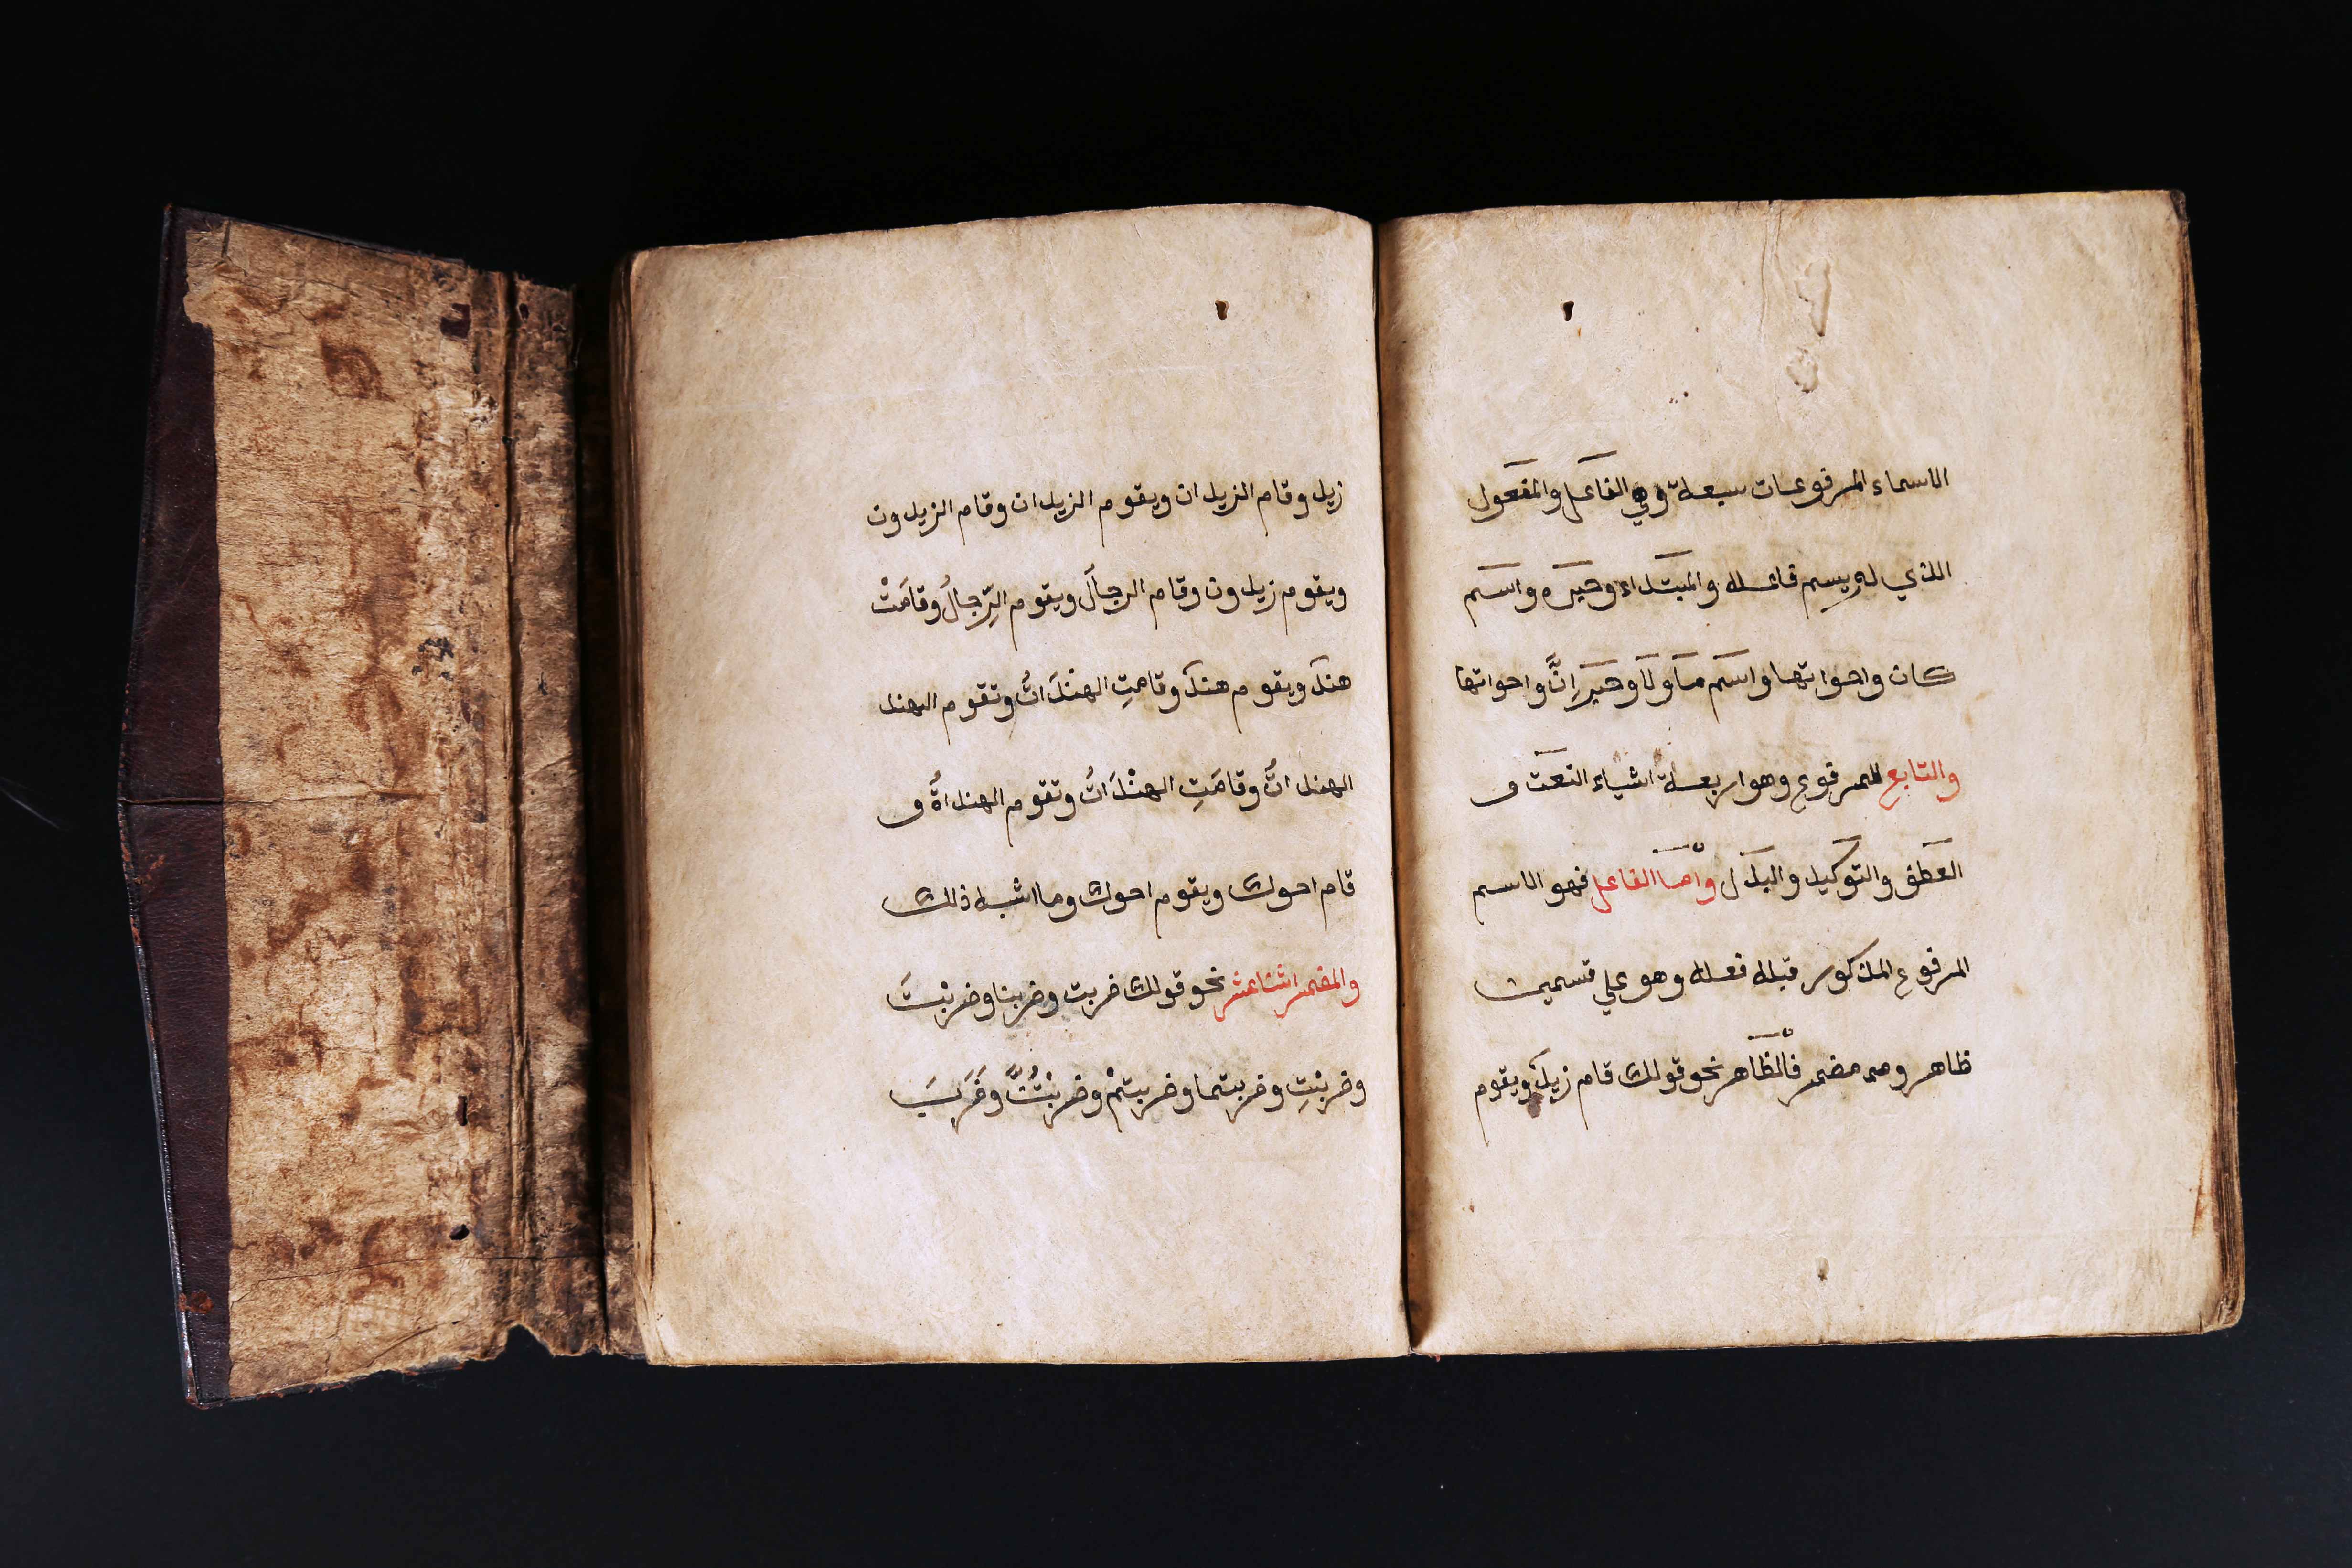 الاسماء المرفوعات سبعة وهي الفاعل والمفعول
الذي لم يسم فاعله والمبتداء وخبره واسم
كان واخواتها واسم ما ولا وخبر اِنَّ واخواتها
والتابع للمرفوع وهو اربعة اشياء النعت و
العطف والتوكيد والبدل واما الفاعل فهو الاسم
المرفوع المذكور قبله فعله وهو علي قسمين
ظاهر ومضمر فالظاهر نحو قولك قام زيد ويقوم
زيد وقام الزيدان ويقوم الزيدان وقام الزيدون
ويقوم زيدون وقام الرجال ويقوم الرِّجالُ وقامَتْ
هند ويقوم هند وقامتِ الهنْدَاتُ وتقوم الهند
الهنداتُ وقامَتِ الهنْدَاتُ وتقوم الهنداةُ و
قام اخوك ويقوم اخوك وما اشبه ذلك
والمضمر اثنا عشر نحو قولك ضربت وضربنا وضربْتَ
وضربْتِ وضربتما وضربتمْ وضربْتُنَّ وضَرَبَ